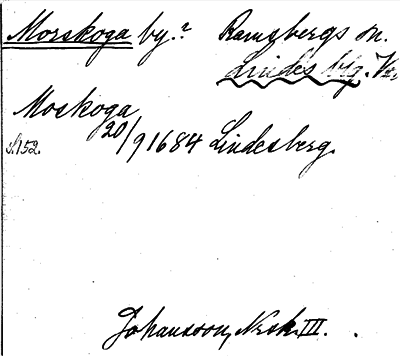 Morskoga by.² Ramsbergs sn.
Lindes blg. Vm.
Moskoga
20/9 1684 Lindesberg.
s. 152.
Johansson, Nsk. III.